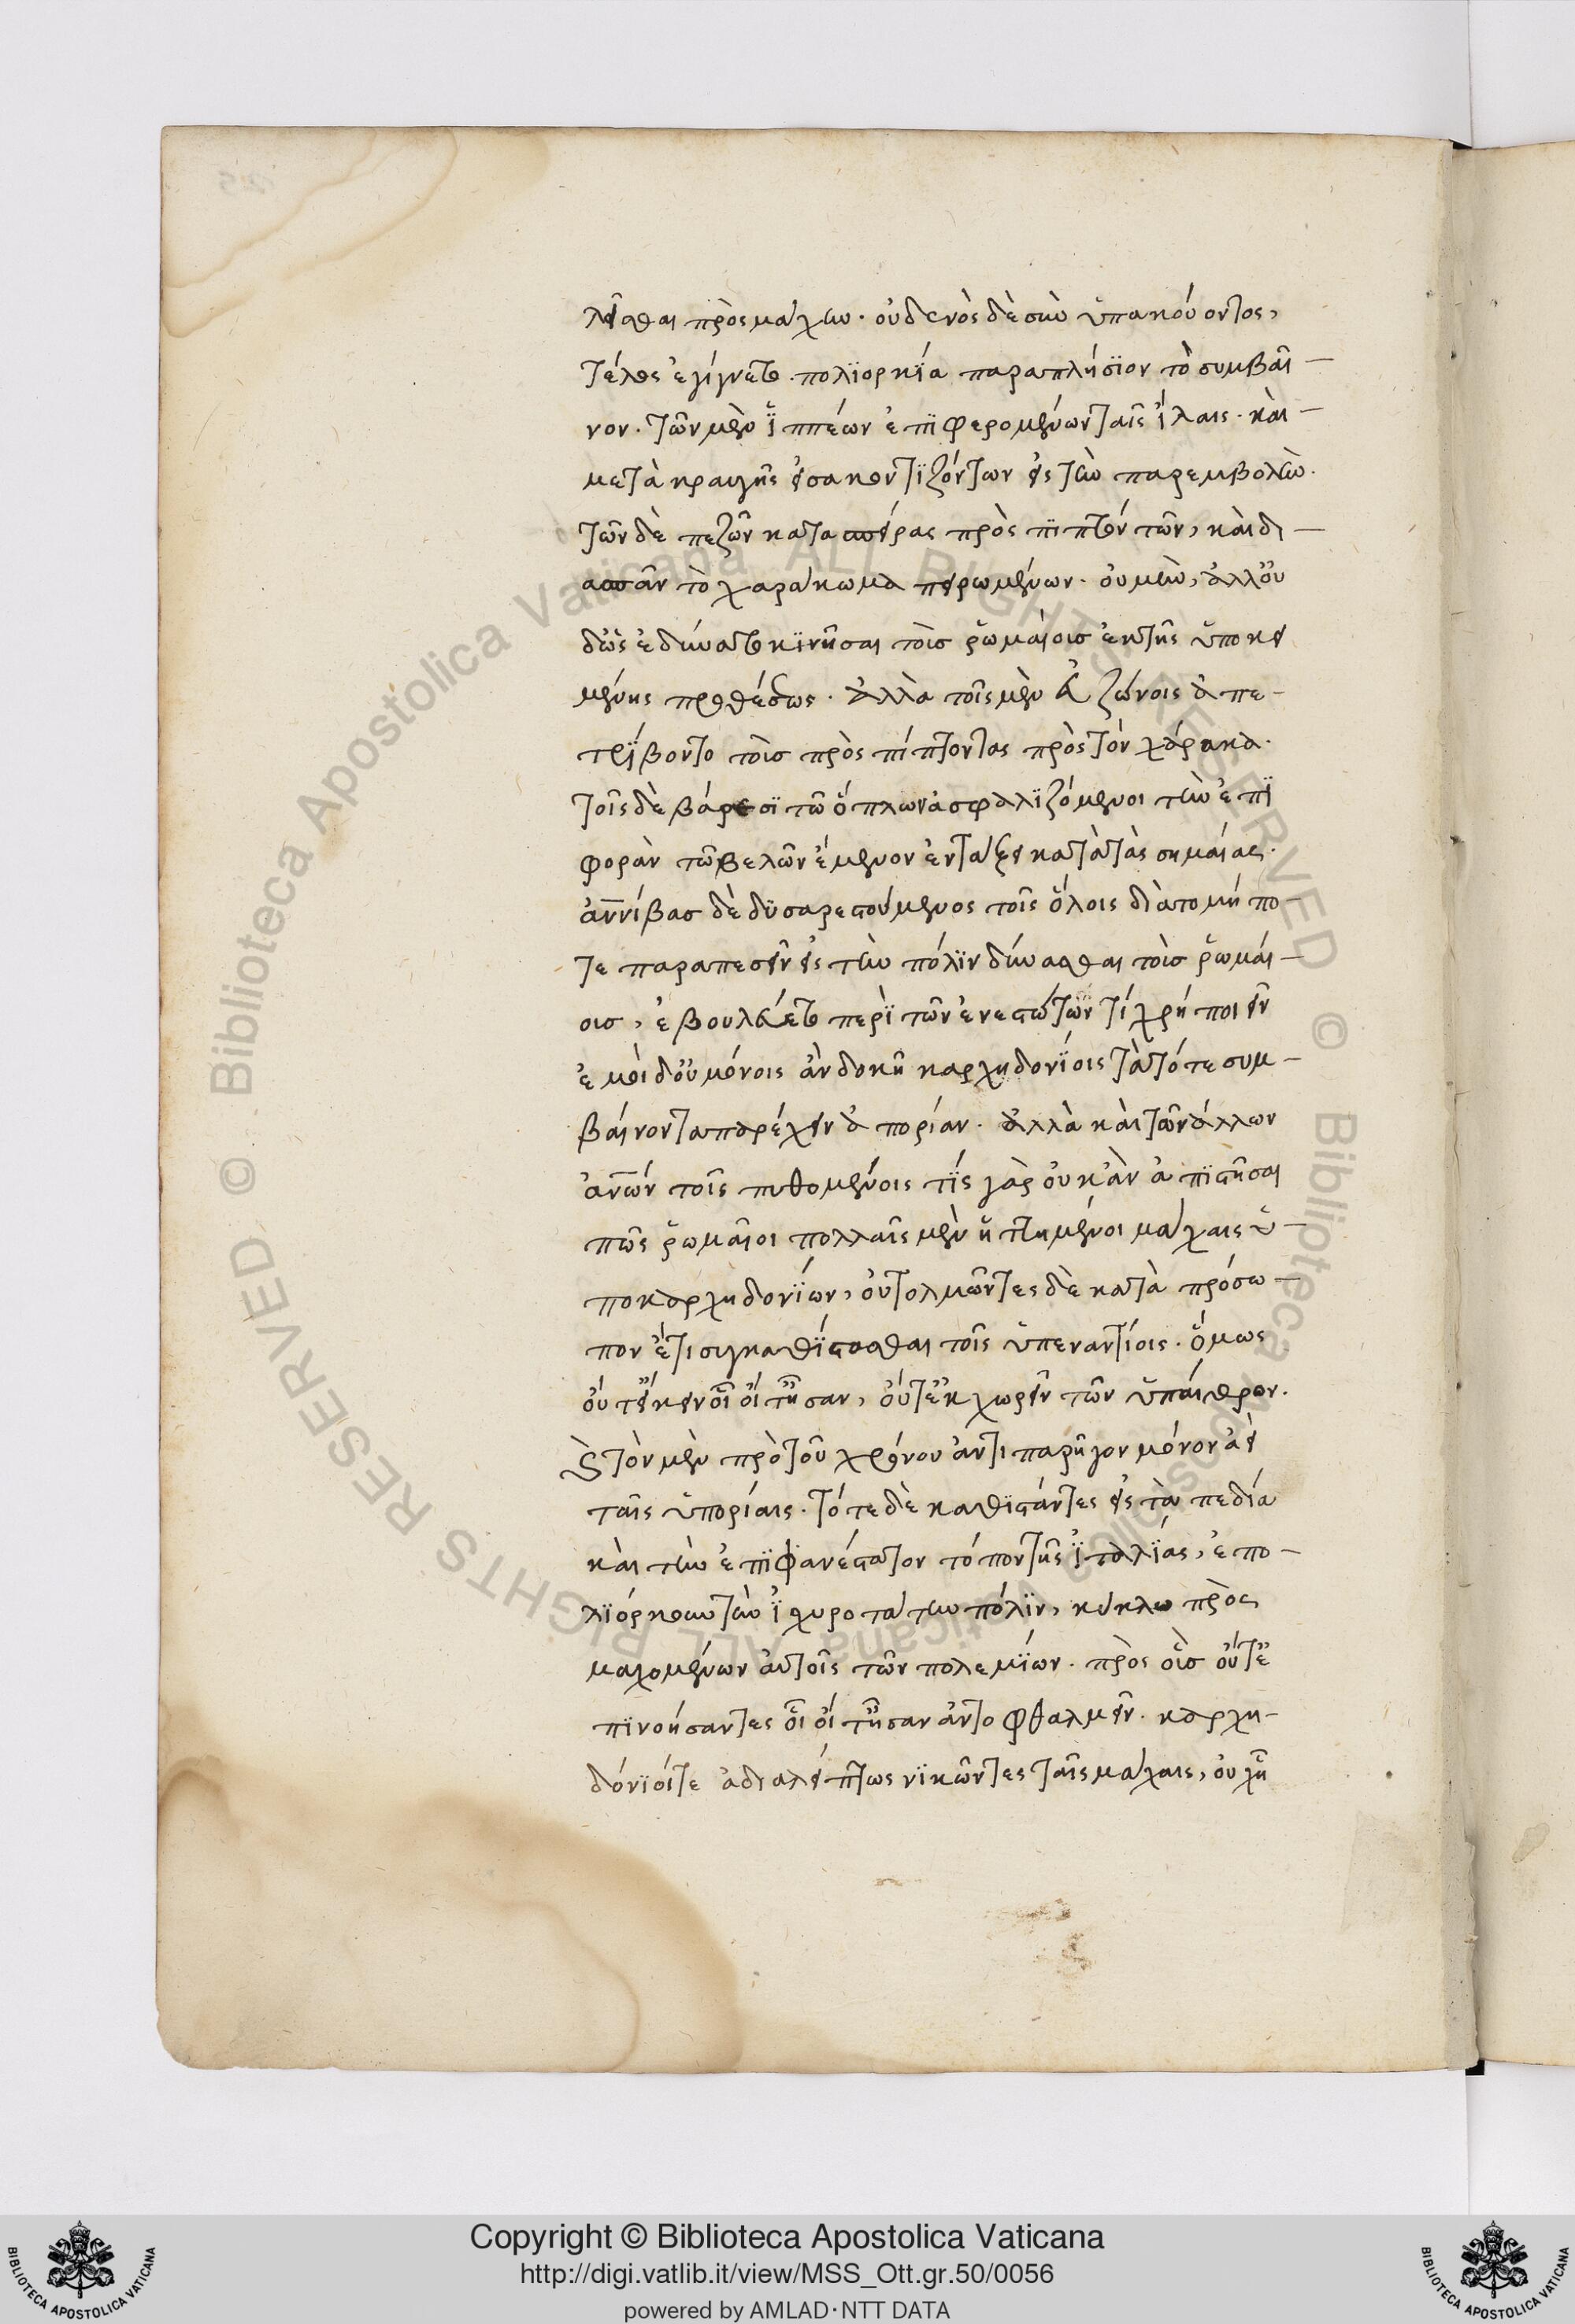 λεῖσθαι πρὸς μάχην. οὐδενὸς δὲ σὺν ὑπακούοντος,
τέλος ἐγίγνετο. πολϊορκΐα παραπλήσϊον τὸ συμβαῖ-
νον. τῶν μὲν ἵππέων ἐπϊφερομένων ταῖς ἴλαις. καὶ-
μετὰ κραυγῆς εἰσακοντϊζόντων εἰς τὴν παρεμβολὴν.
τῶν δὲ πεζῶν κατασπείρας πρὸς πιπτόν τῶν, καὶ δι-
ασπᾶν τὸ χαράκωμα πειρωμένων. οὐ μὴν, ἀλλ' οὐ
δ' ὣς ἐδύνατο κϊνῆσαι τοὶσ ῥωμαίοισ ἐκ τῆς ὑποκει
μένης προθέσεως. ἀλλὰ τοῖς μὲν εὐζώνοις ἀπε-
τρίβοντο τοὶσ πρὸς πίπτοντας πρὸς τὸν χάρακα.
τοῖς δὲ βάρεσϊ τῶ ὅπλων ἀσφαλϊζόμενοι τὴν ἐπϊ
φορὰν τῶ βελῶν ἔμενον ἐν τάξει κατὰ τὰς σημαίας.
ἀννίβασ δὲ δϋσαρεστούμενος τοῖς ὅλοις διὰ το μή πο-
τε παραπεσεῖν εἰς τὴν πόλϊν δύνασθαι τοὶσ ῥωμαί-
οισ, ἐβουλεύετο περὶ τῶν ἐνεστώτων τί χρή ποιεῖν
ἐμοὶ δ' οὐ μόνοις ἂν δοκῆ καρχηδονΐοις τὰ τότε συμ-
βαίνοντα παρέχειν ἀπορίαν. ἀλλὰ καὶ τῶν ἄλλων
ἀνων τοῖς πυθομένοις τΐς γὰρ οὐκ ἂν ἀπϊστῆσαι
πῶς ῥωμαῖοι πολλαῖς μὲν ἡττημένοι μάχαις ὑ-
πο καρχηδονΐων, οὐ τολμῶντες δὲ κατὰ πρόσω-
πον ἔτι συγκαθΐστασθαι τοῖς ὑπεναντίοις. ὅμως
οὔτ' εἴκειν οἷοί τ' ἦσαν, οὔτ' ἐκχωρεῖν τῶν ὑπαίθρων.
ϛ τὸν μὲν πρὸ τοῦ χρόνου ἀντιπαρῆγον μόνον ἀεὶ
ταῖς ὑπορίαις. τότε δὲ καθϊστάντες εἰς τὰ πεδία
καὶ τὴν ἐπϊφανέστατον τόπον τῆς ἰταλΐας, ἐπο-
λϊόρκουν τὴν ἰχυροτάτην πόλϊν, κύκλω πρὸς
μαχομένων αὐτοῖς τῶν πολεμΐων. πρὸς οὓσ οὔτ' ἐ
πϊνοήσαντες οἷοί τ' ἦσαν ἀντοφθαλμεῖν. καρχη-
δόνϊοίτε ἀδιαλείπτως νϊκῶντες ταῖς μάχαις, οὐχ ἧ